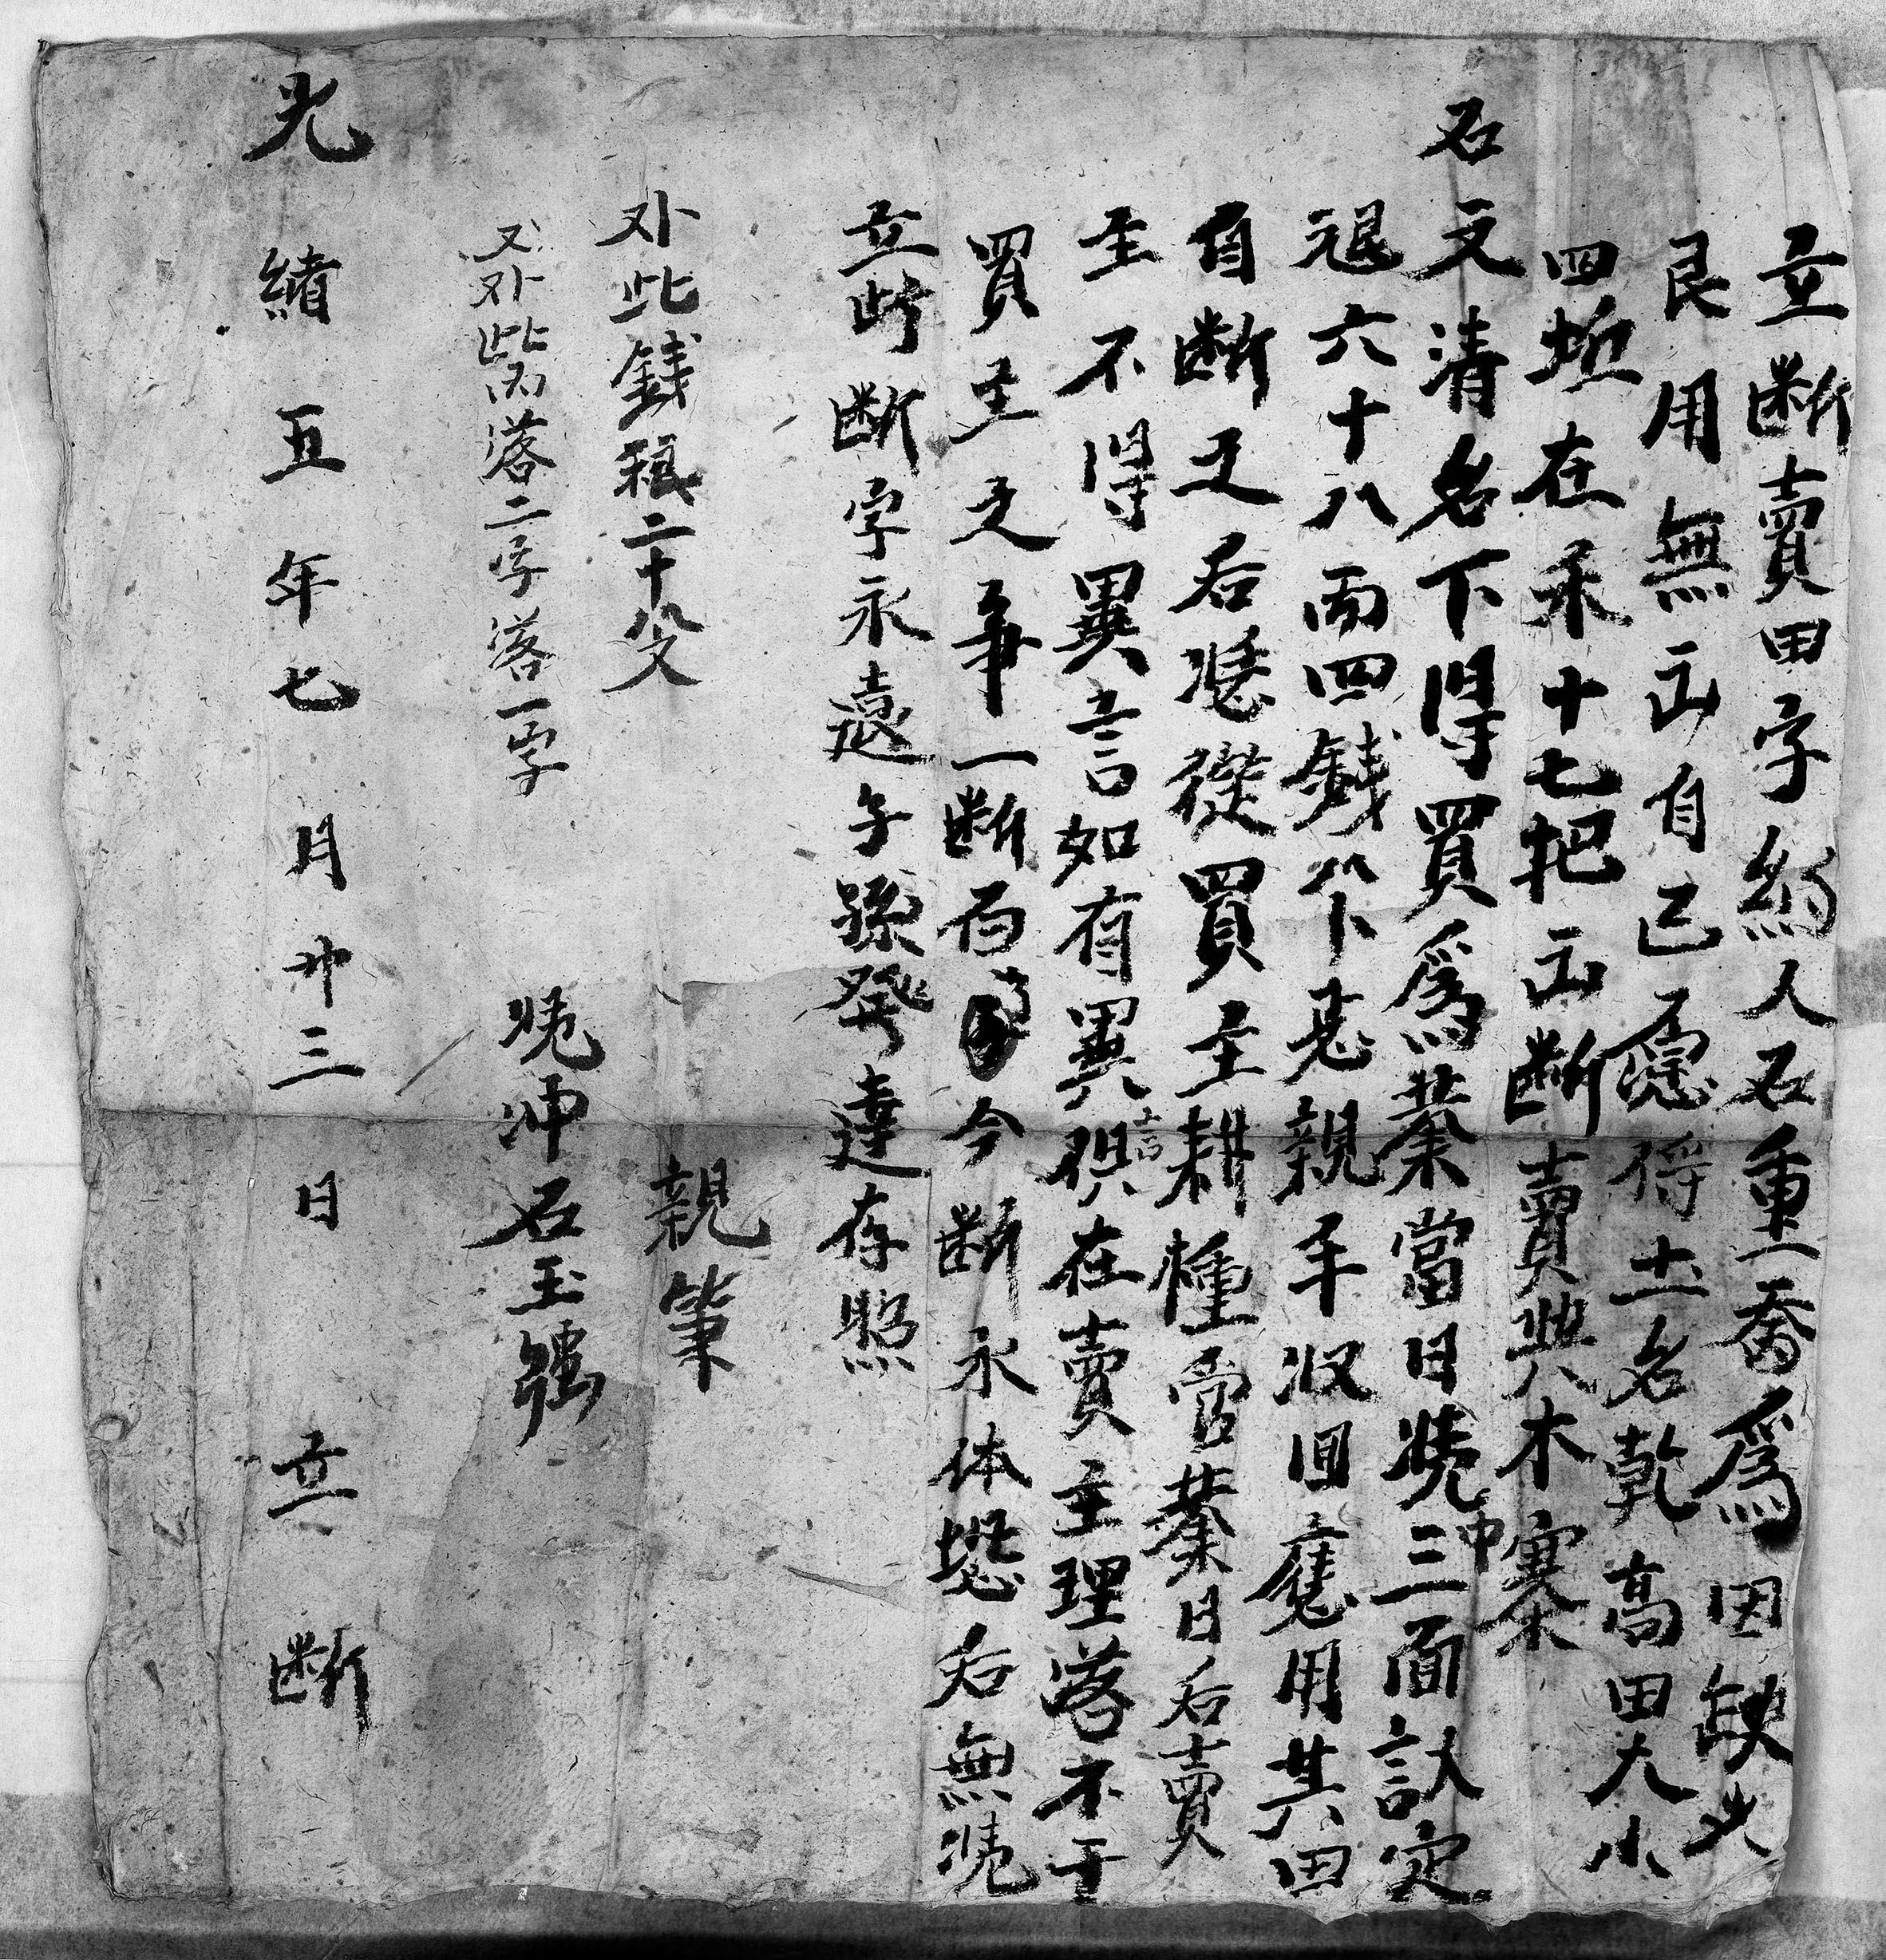 立断賣田字約人石重喬爲因缺少
艮用無出自己愿將土名乾高田大小
四坵在禾十七把出断賣與木寨
石文清名下得買爲業當日凴中三面議定
禒六十八両四錢八卜悬親手収回應用其田
自断之后凴從買主耕種管業日后賣
主不得異言如有異言俱在賣主理落不干
買主之事一断百了今断永休恐后無凴
立此断字永遠子孫發達存照
外批錢粮二十八文
親筆
又外批内落二字落一字
凴冲石玉𬼀
光緒五年七月廿三日立断